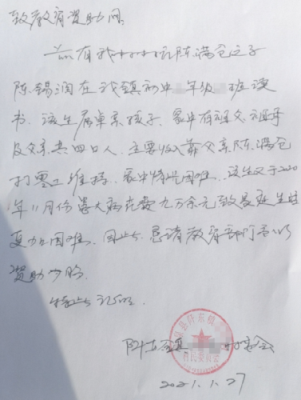 致教育资助局
兹有我村村民陈满仓之子
陈锡润在我镇初中 年级 班读
书，该生属单亲孩子，家中有祖父、祖母
及父亲共四口人，主要收入靠父亲陈满仓
打零工维持，家中特别困难，该生又于2020
年11月份患大病花费九万余元致家庭生活
更加困难。因此，恳请教育部门予以
资助为盼。
特此证明
2021.1.27